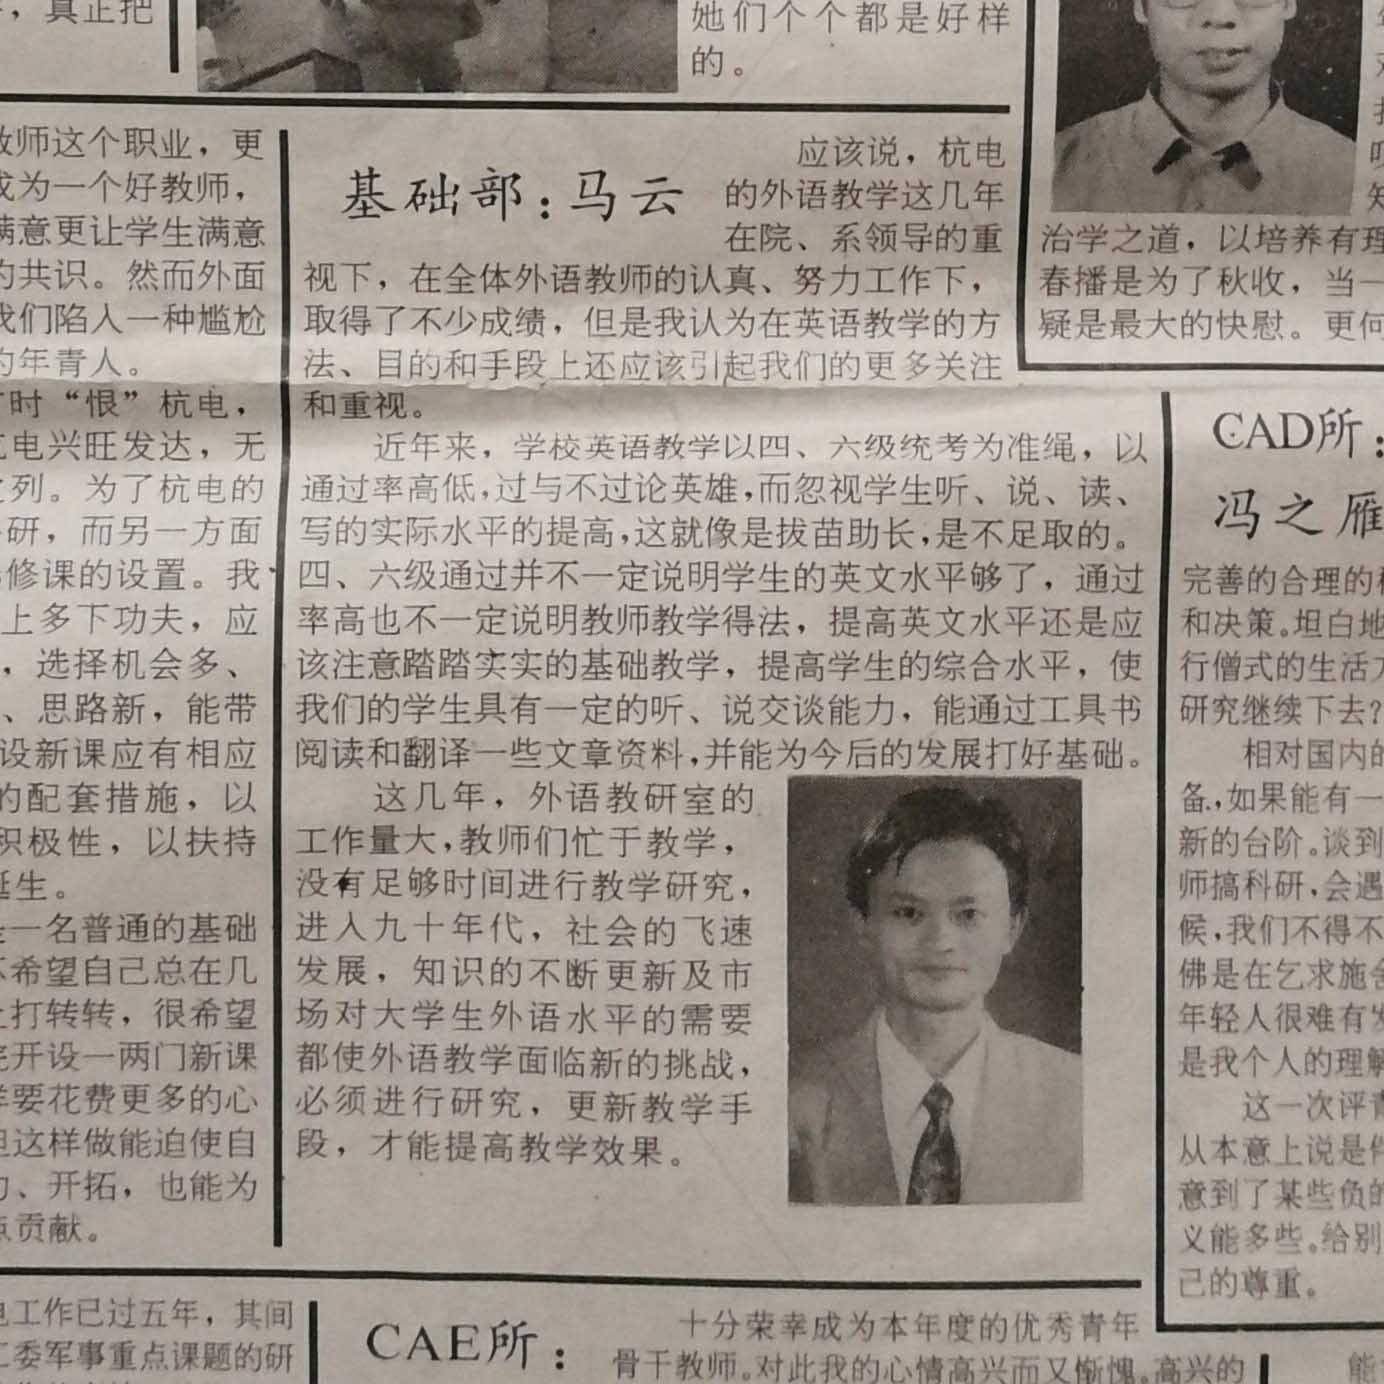 ，真正把
她们个个都是好样
的。
教师这个职业，更
成为一个好教师，
满意更让学生满意
的共识。然而外面
我们陷入一种尴尬
的年青人。
有时“恨”杭电，
杭电兴旺发达，无
之列。为了杭电的
研，而另一方面
修课的设置。我
上多下功夫，应
，选择机会多、
、思路新，能带
设新课应有相应
的配套措施，以
积极性，以扶持
诞生。
是一名普通的基础
不希望自己总在几
上打转转，很希望
院开设一两门新课
样要花费更多的心
但这样做能迫使自
力、开拓，也能为
点贡献。
基础部：马云
应该说，杭电
的外语教学这几年
在院、系领导的重
视下，在全体外语教师的认真、努力工作下，
取得了不少成绩，但是我认为在英语教学的方
法、目的和手段上还应该引起我们的更多关注
和重视。
近年来，学校英语教学以四、六级统考为准绳，以
通过率高低，过与不过论英雄，而忽视学生听、说、读、
写的实际水平的提高，这就像是拔苗助长，是不足取的。
四、六级通过并不一定说明学生的英文水平够了，通过
率高也不一定说明教师教学得法，提高英文水平还是应
该注意踏踏实实的基础教学，提高学生的综合水平，使
我们的学生具有一定的听、说交谈能力，能通过工具书
阅读和翻译一些文章资料，并能为今后的发展打好基础。
这几年，外语教研室的
工作量大，教师们忙于教学，
没有足够时间进行教学研究，
进入九十年代，社会的飞速
发展，知识的不断更新及市
场对大学生外语水平的需要
都使外语教学面临新的挑战，
必须进行研究，更新教学手
段，才能提高教学效果。
治学之道，以培养有理
春播是为了秋收，当一
疑是最大的快慰。更何
CAD所：
冯之雁
完善的合理的
和决策。坦白地
行僧式的生活方
研究继续下去？
相对国内的
备，如果能有一
新的台阶。谈到
师搞科研，会遇
候，我们不得不
佛是在乞求施舍
年轻人很难有发
是我个人的理解
这一次评青
从本意上说是件
意到了某些负的
义能多些。给别
己的尊重。
电工作已过五年，其间
工委军事重点课题的研
CAE所：
十分荣幸成为本年度的优秀青年
骨干教师。对此我的心情高兴而又惭愧。高兴的
能